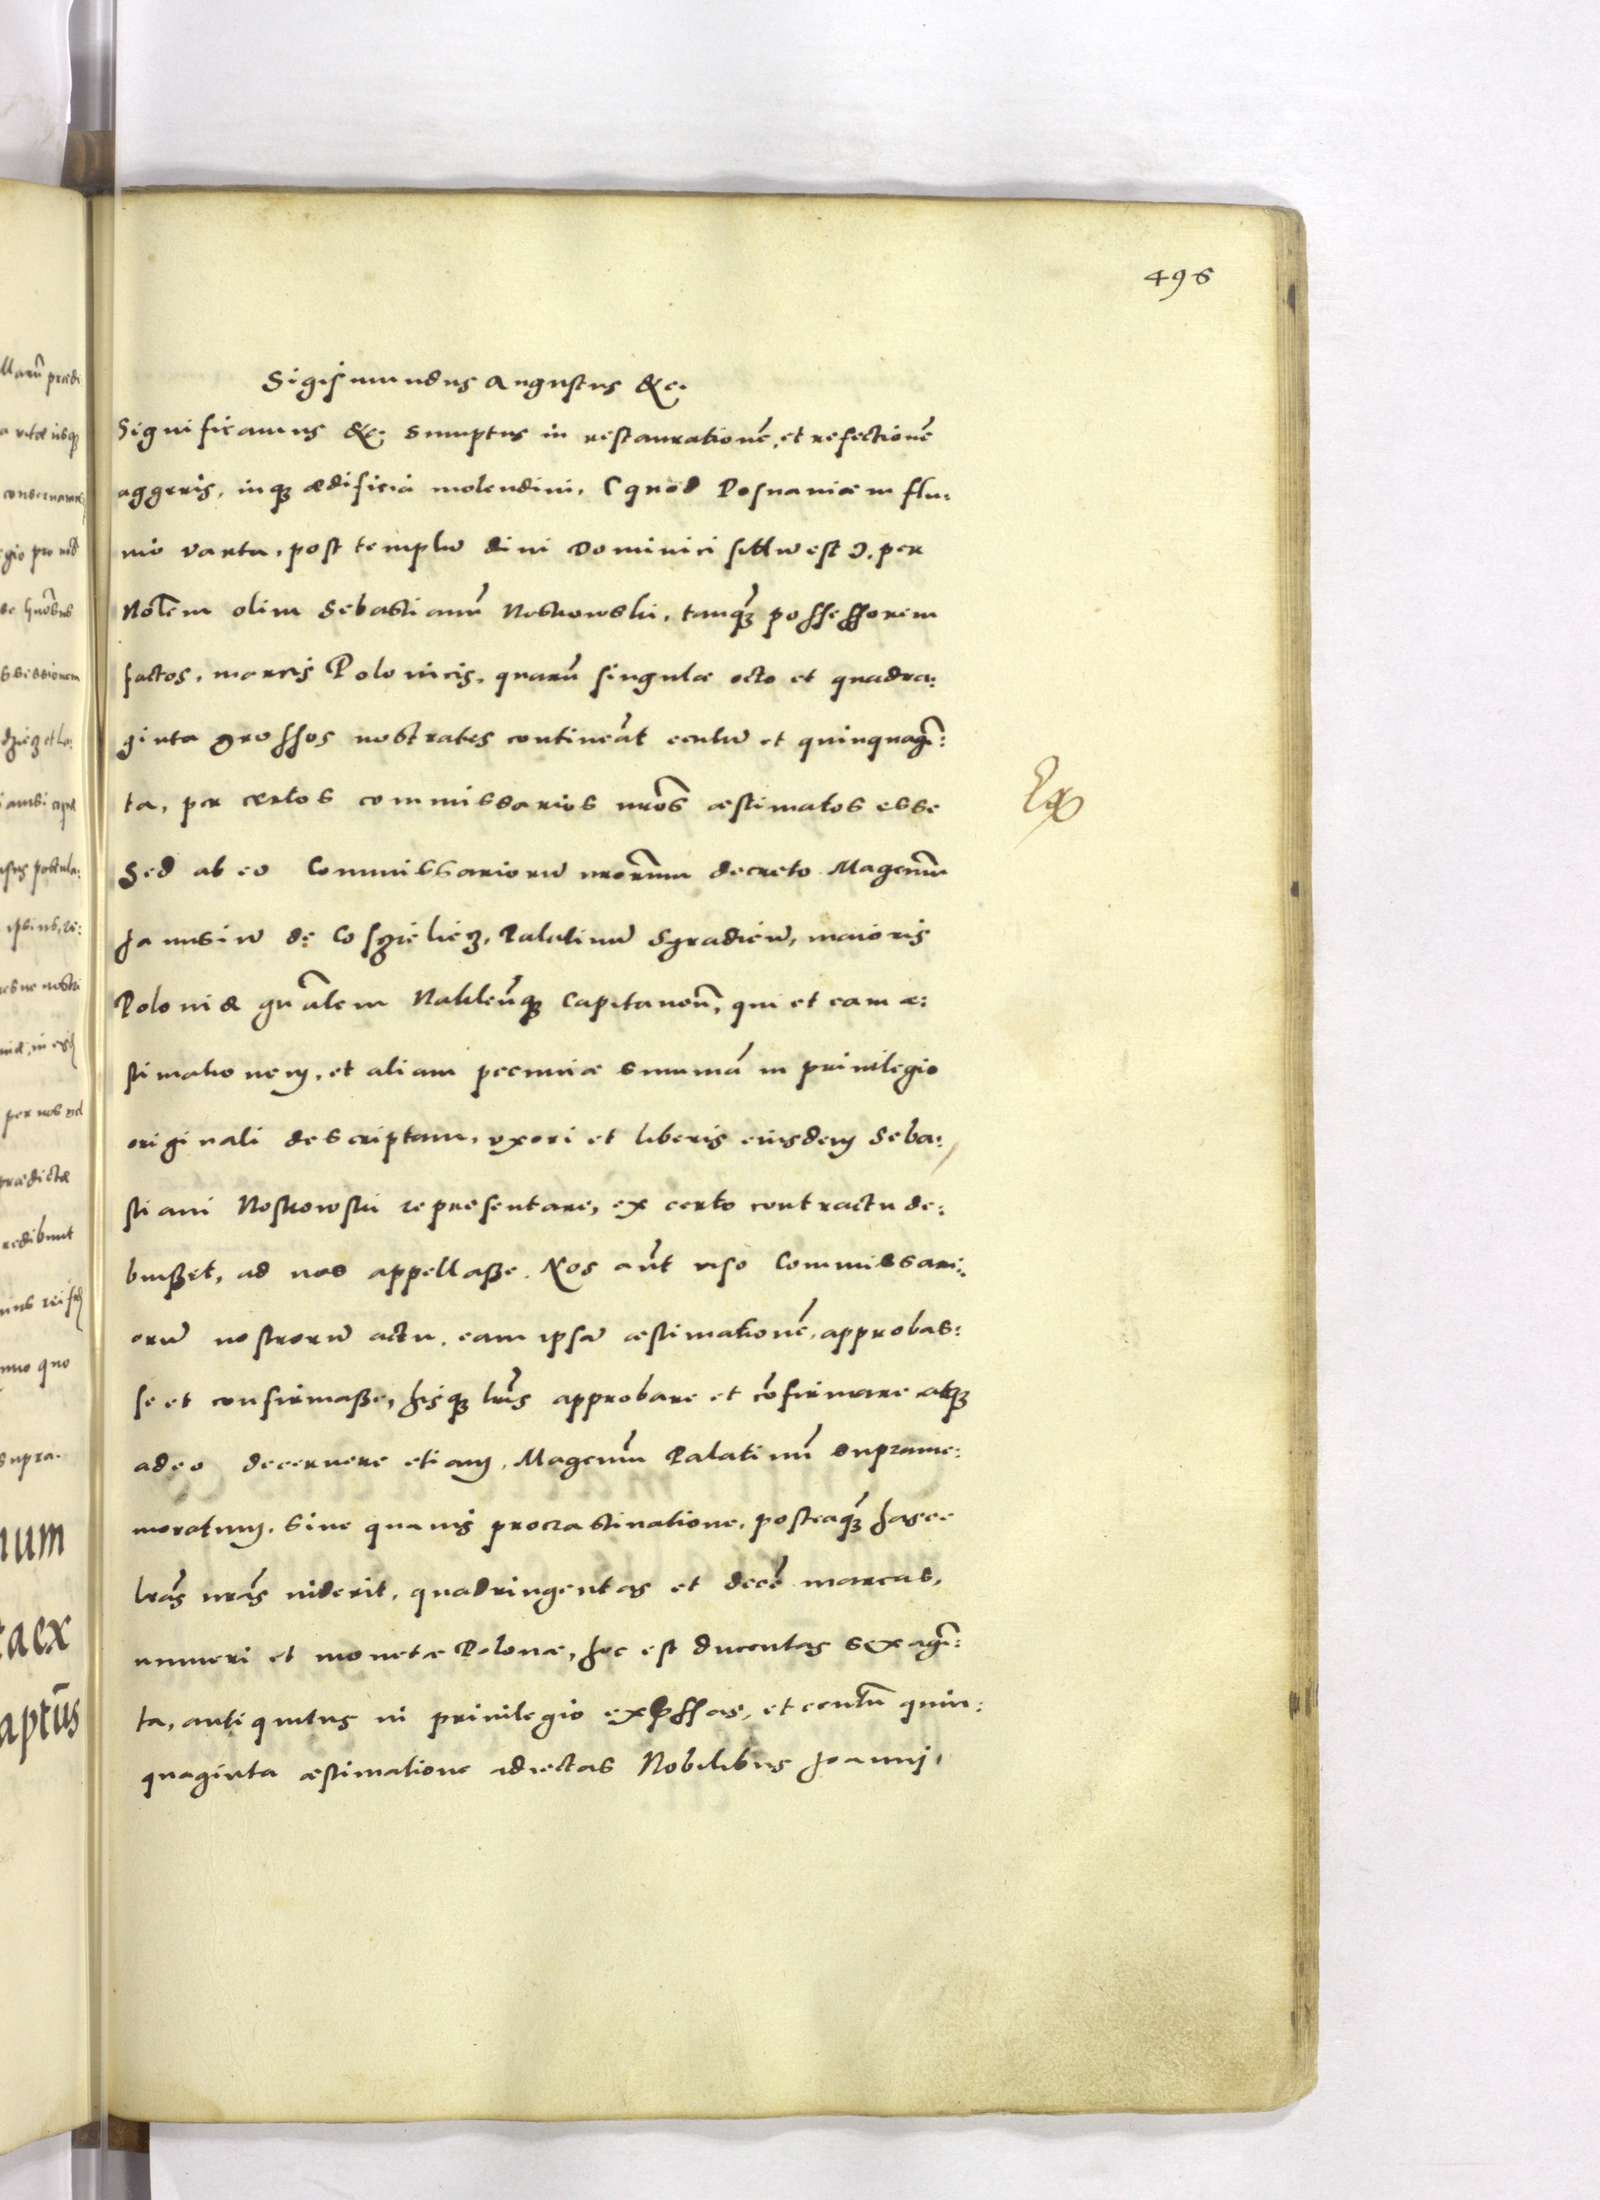 496
Sigismundus Augustus &c.
Significamus &c. Sumptus in restaurationē, et refectionē
aggeris, inq3 ædificia molendini, (quod Posnaniæ in flu:
mio Varta, post templū diui Dominici situ est), per
Nobilem olim Sebastianū Noskowski, tanq3 possessorem
factos, marcis Polonicis, quarū singulæ octo et quadra:
ginta grossos nostrates contineāt centū et quinquagī:
ta, per certos commissarios nrōs æstimatos esse
Sed ab eo Commissariorū nrorum decreto Magcum
Janusiū de Cosczieliecz, Palatinū Syradieū, maioris
Poloniæ gnālem Naklenq3 Capitaneū, qui et eam æ:
stimationem, et aliam pecuniæ summā in priuilegio
originali descriptam, vxori et liberis eiusdem Seba:
stiani Noskowski repræsentare, ex certo contractu de:
buisset, ad nos appellasse. Nos aūt viso Commissari:
orū nostrorū actu, eam ipsā æstimationē, approbas:
se et confirmasse, hisq3 lrīs approbare et cōfirmare atq3
adeo decernere etiam, Magcum Palatinū suprame:
moratum, sine quauis procrastinatione, posteaq3 hasce
lrās nrās viderit, quadringentas et decē marcas,
numeri et monetæ Polonæ, hoc est ducentas sexagī:
ta, antiquitus in priuilegio expssas, et centū quin:
quaginta æstimatione adiectas Nobilibus Joanni,